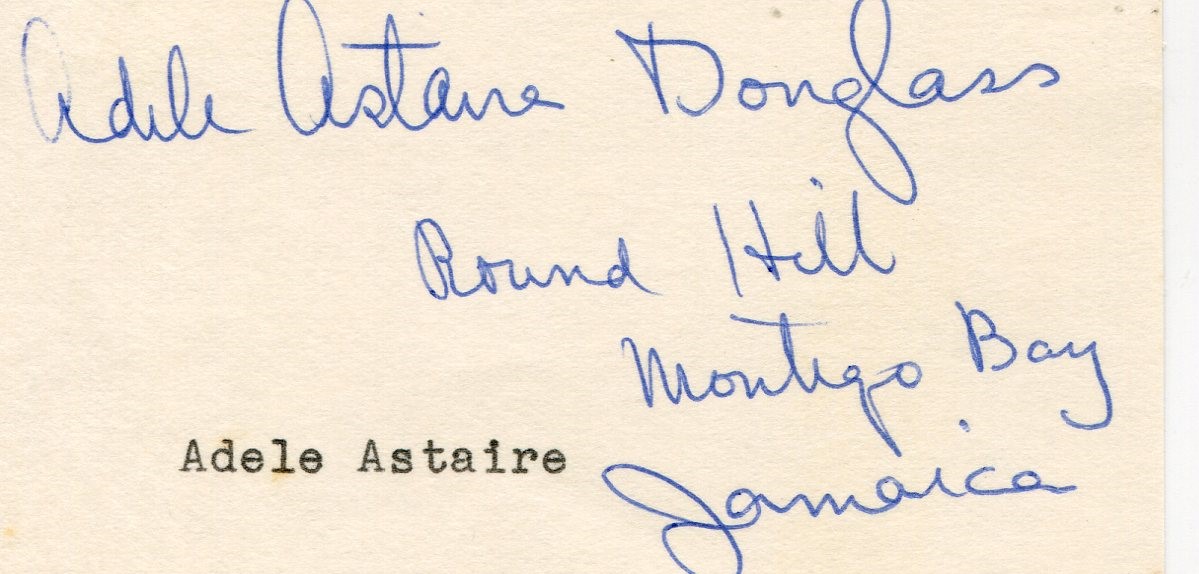 Adele Astaire Douglass
Round Hill
Montego Bay
Adele Astaire
Jamaica